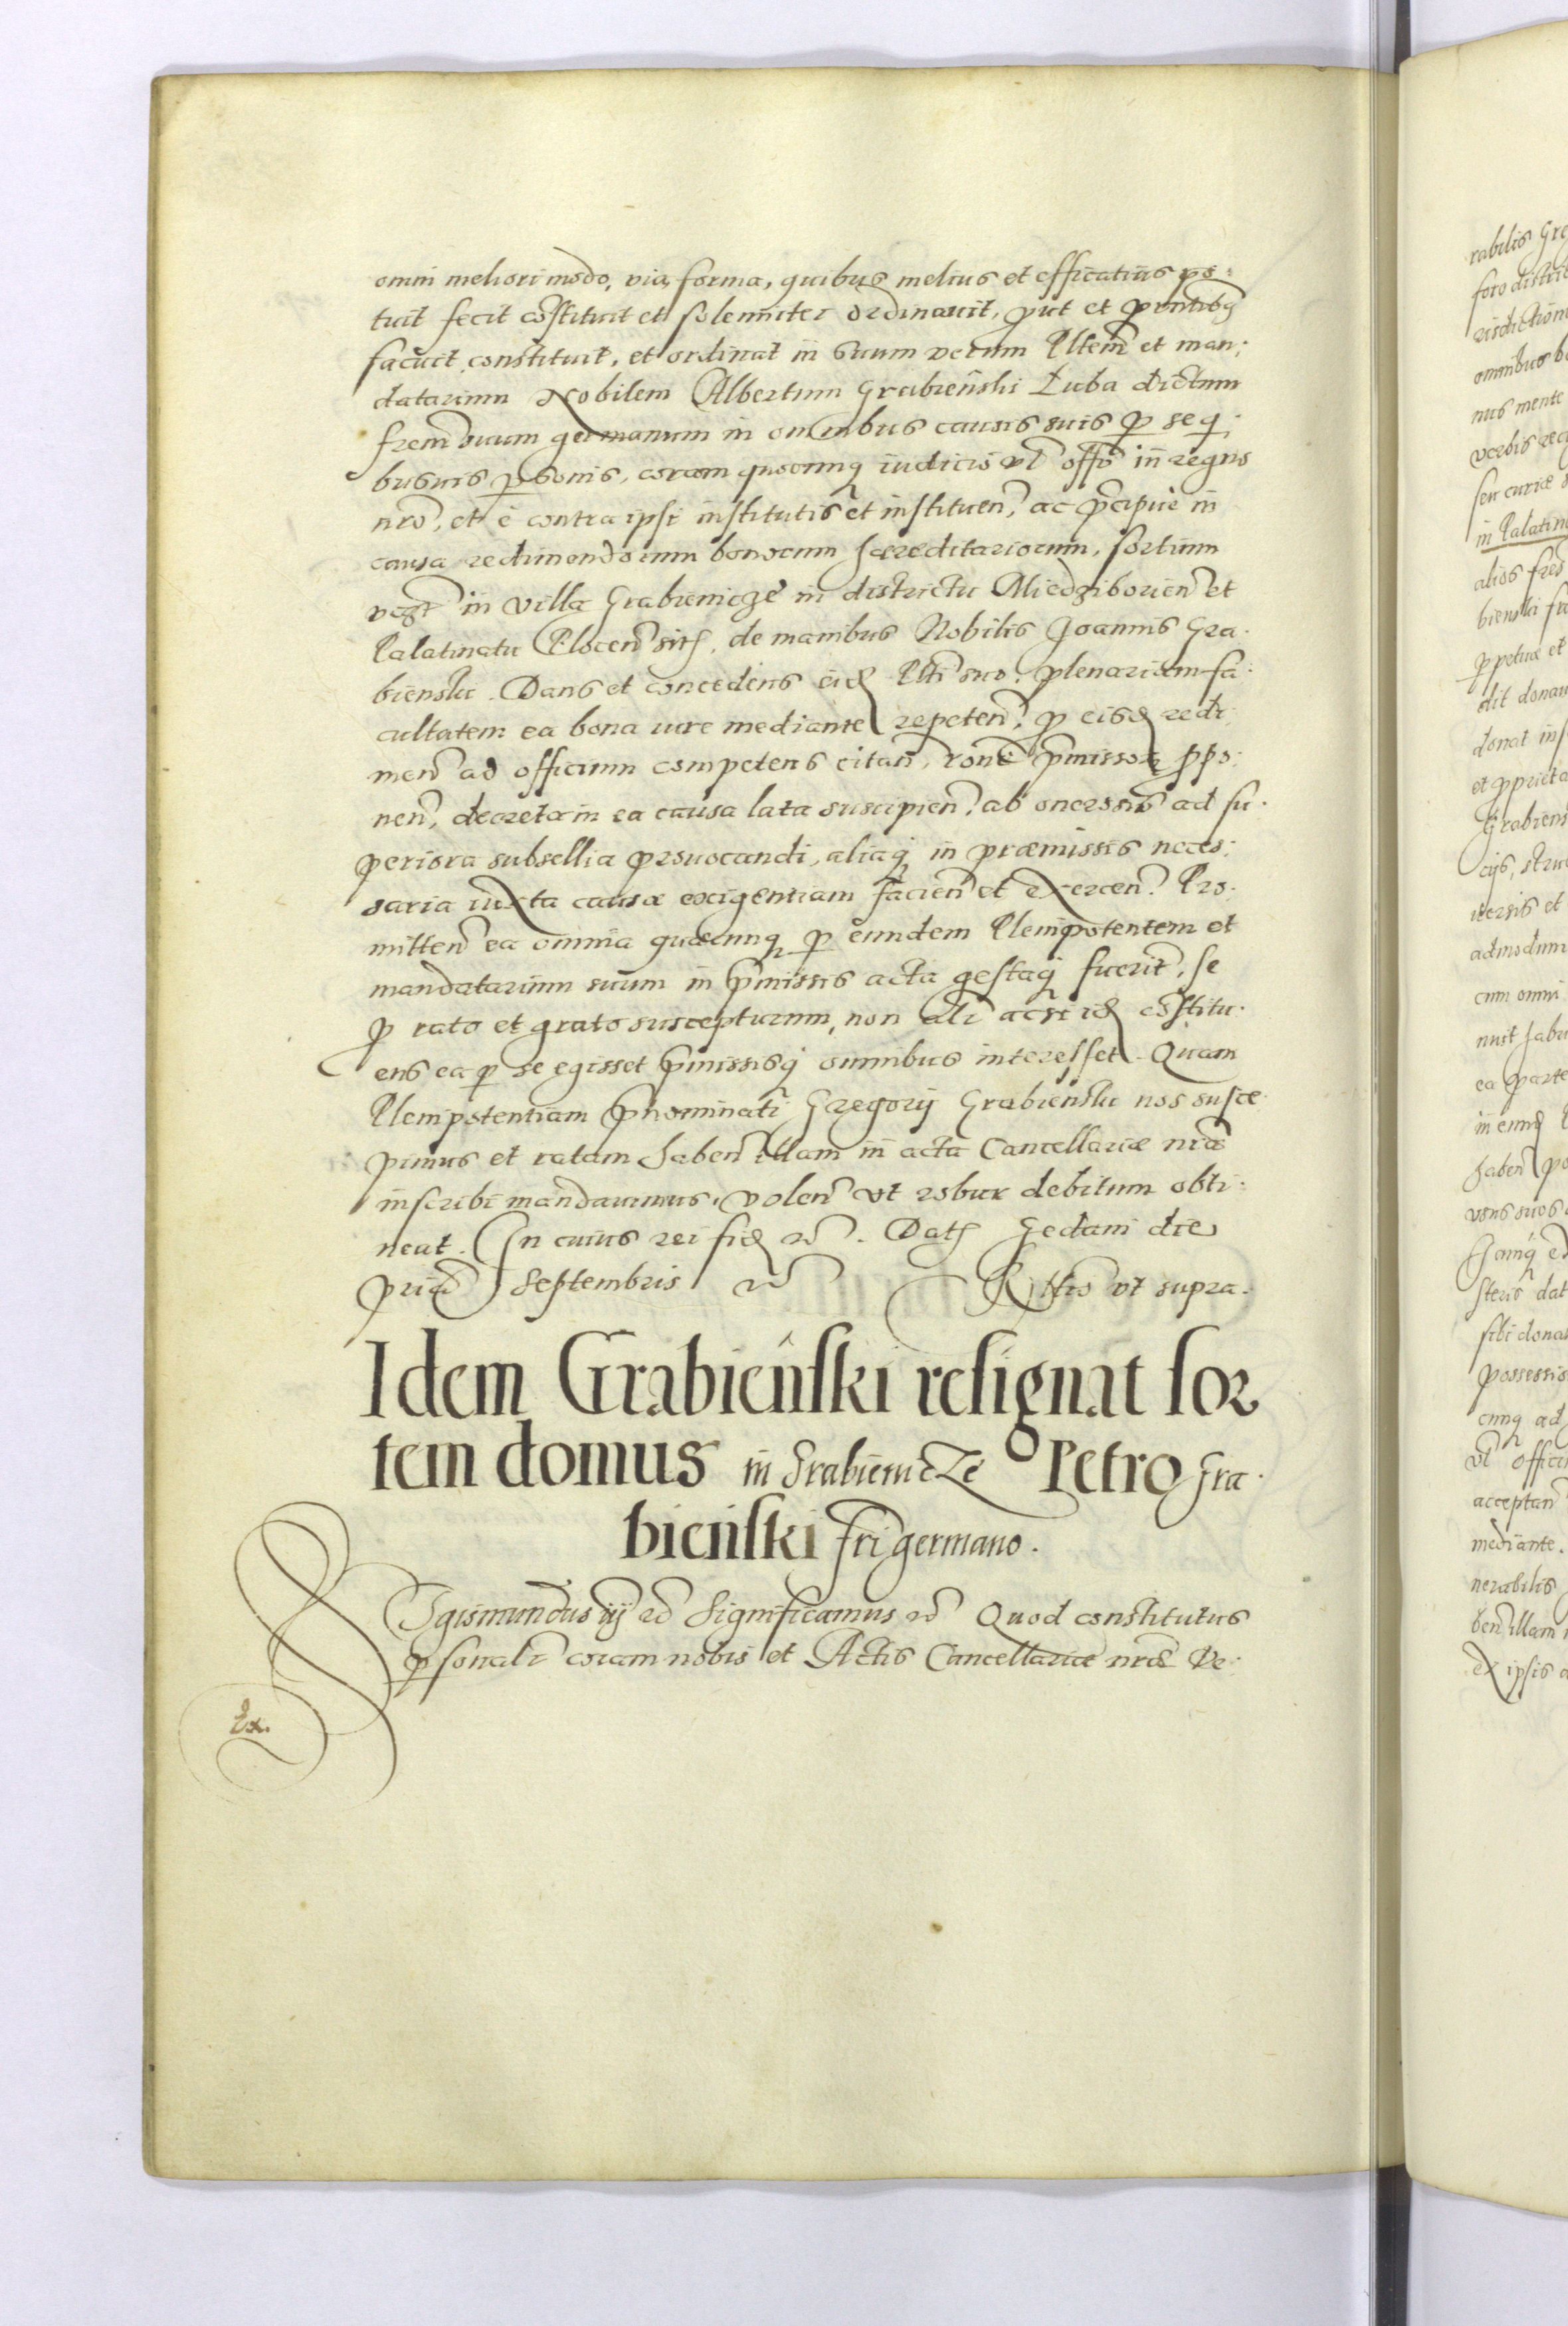 omni meliori modo, via, forma, quibus melius et efficatius po-
tuit fecit cõstituit et solenniter ordinavit, prout et pr̃ntibq
faciuit, constituit, et ordinat in suum verum Pltem̃ et man-
datarium Nobilem Albertum Grabieński Łuba dictum
frem̃ suum germanum in omnibus causis suis p se q
busuis psonis, coram quocunq iudicio vl̃ offõ in regno
nrõ, et è contra ipsi institutis et instituen̄, ac pr̃cipue in
causa redimendorum bonorum hæreditariorum, sortium
vczt in villa Grabienicze in districtu Miedziborien̄ et
Palatinatu Plocen̄ sitʒ, de manibus Nobilis Joannis Gra-
bienski. Dans et concedens eidʒ Pltĩ suo, plenariam fa-
cultatem ea bona iure mediante repeten̄, p eisdʒ redi-
men̄ ad officium competens citan̄, ronẽ pr̃missorʒ ppo-
nen̄, decreta in ea causa lata suscipien̄, ab onerosis ad su-
periora subsellia provocandi, aliaq in præmissis neces-
saria iuxta causæ exigentiam facien̄ et exercen̄. Pro-
mitten̄ ea omnia quæcunq p eundem Plenipotentem et
mandatarium suum in pr̃missis acta gestaq fuerit, se
p rato et grato suscepturum, non alr̃ ac si idʒ cõstitu-
ens ea p se egisset pr̃missisq omnibus interesset. Quam
Plenipotentiam pr̃nominati Gregorij Grabienski nos susce-
pimus et ratam haben̄ illam in acta Cancellariæ nr̃æ
inscribi mandavimus, volen̄ vt robur debitum obti-
neat. In cuius rei fidʒ etc̃. Datʒ Gedani die
prima Septembris etc̃ Rℓtio vt supra.
Idem Grabieński resignat sor
tem domus in Grabienicze Petro Gra-
bieński fri germano.
Sigismundus iij etc̃ Significamus etc̃ Quod constitutus
psonalr̃ coram nobis et Actis Cancellariæ nr̃æ Ve-
Ex.
rabilis Gre
foro distric
risdictione
omnibus b
nus mente
verbis rec
seu curiæ
in Palatin
alios fres
bienski fr
ppetuæ et
dit donau
donat ins
et pprieta
Grabiens
cijs, stru
uersis et
admodum
cum omni
nuit habu
ea parte
in eundʒ
haben̄ po
vsus suos
steris dat
sibi donat
possessio
cunq ad
vl̃ offici
acceptan̄
mediante.
nerabilis
ben̄ illam
ex ipsis a